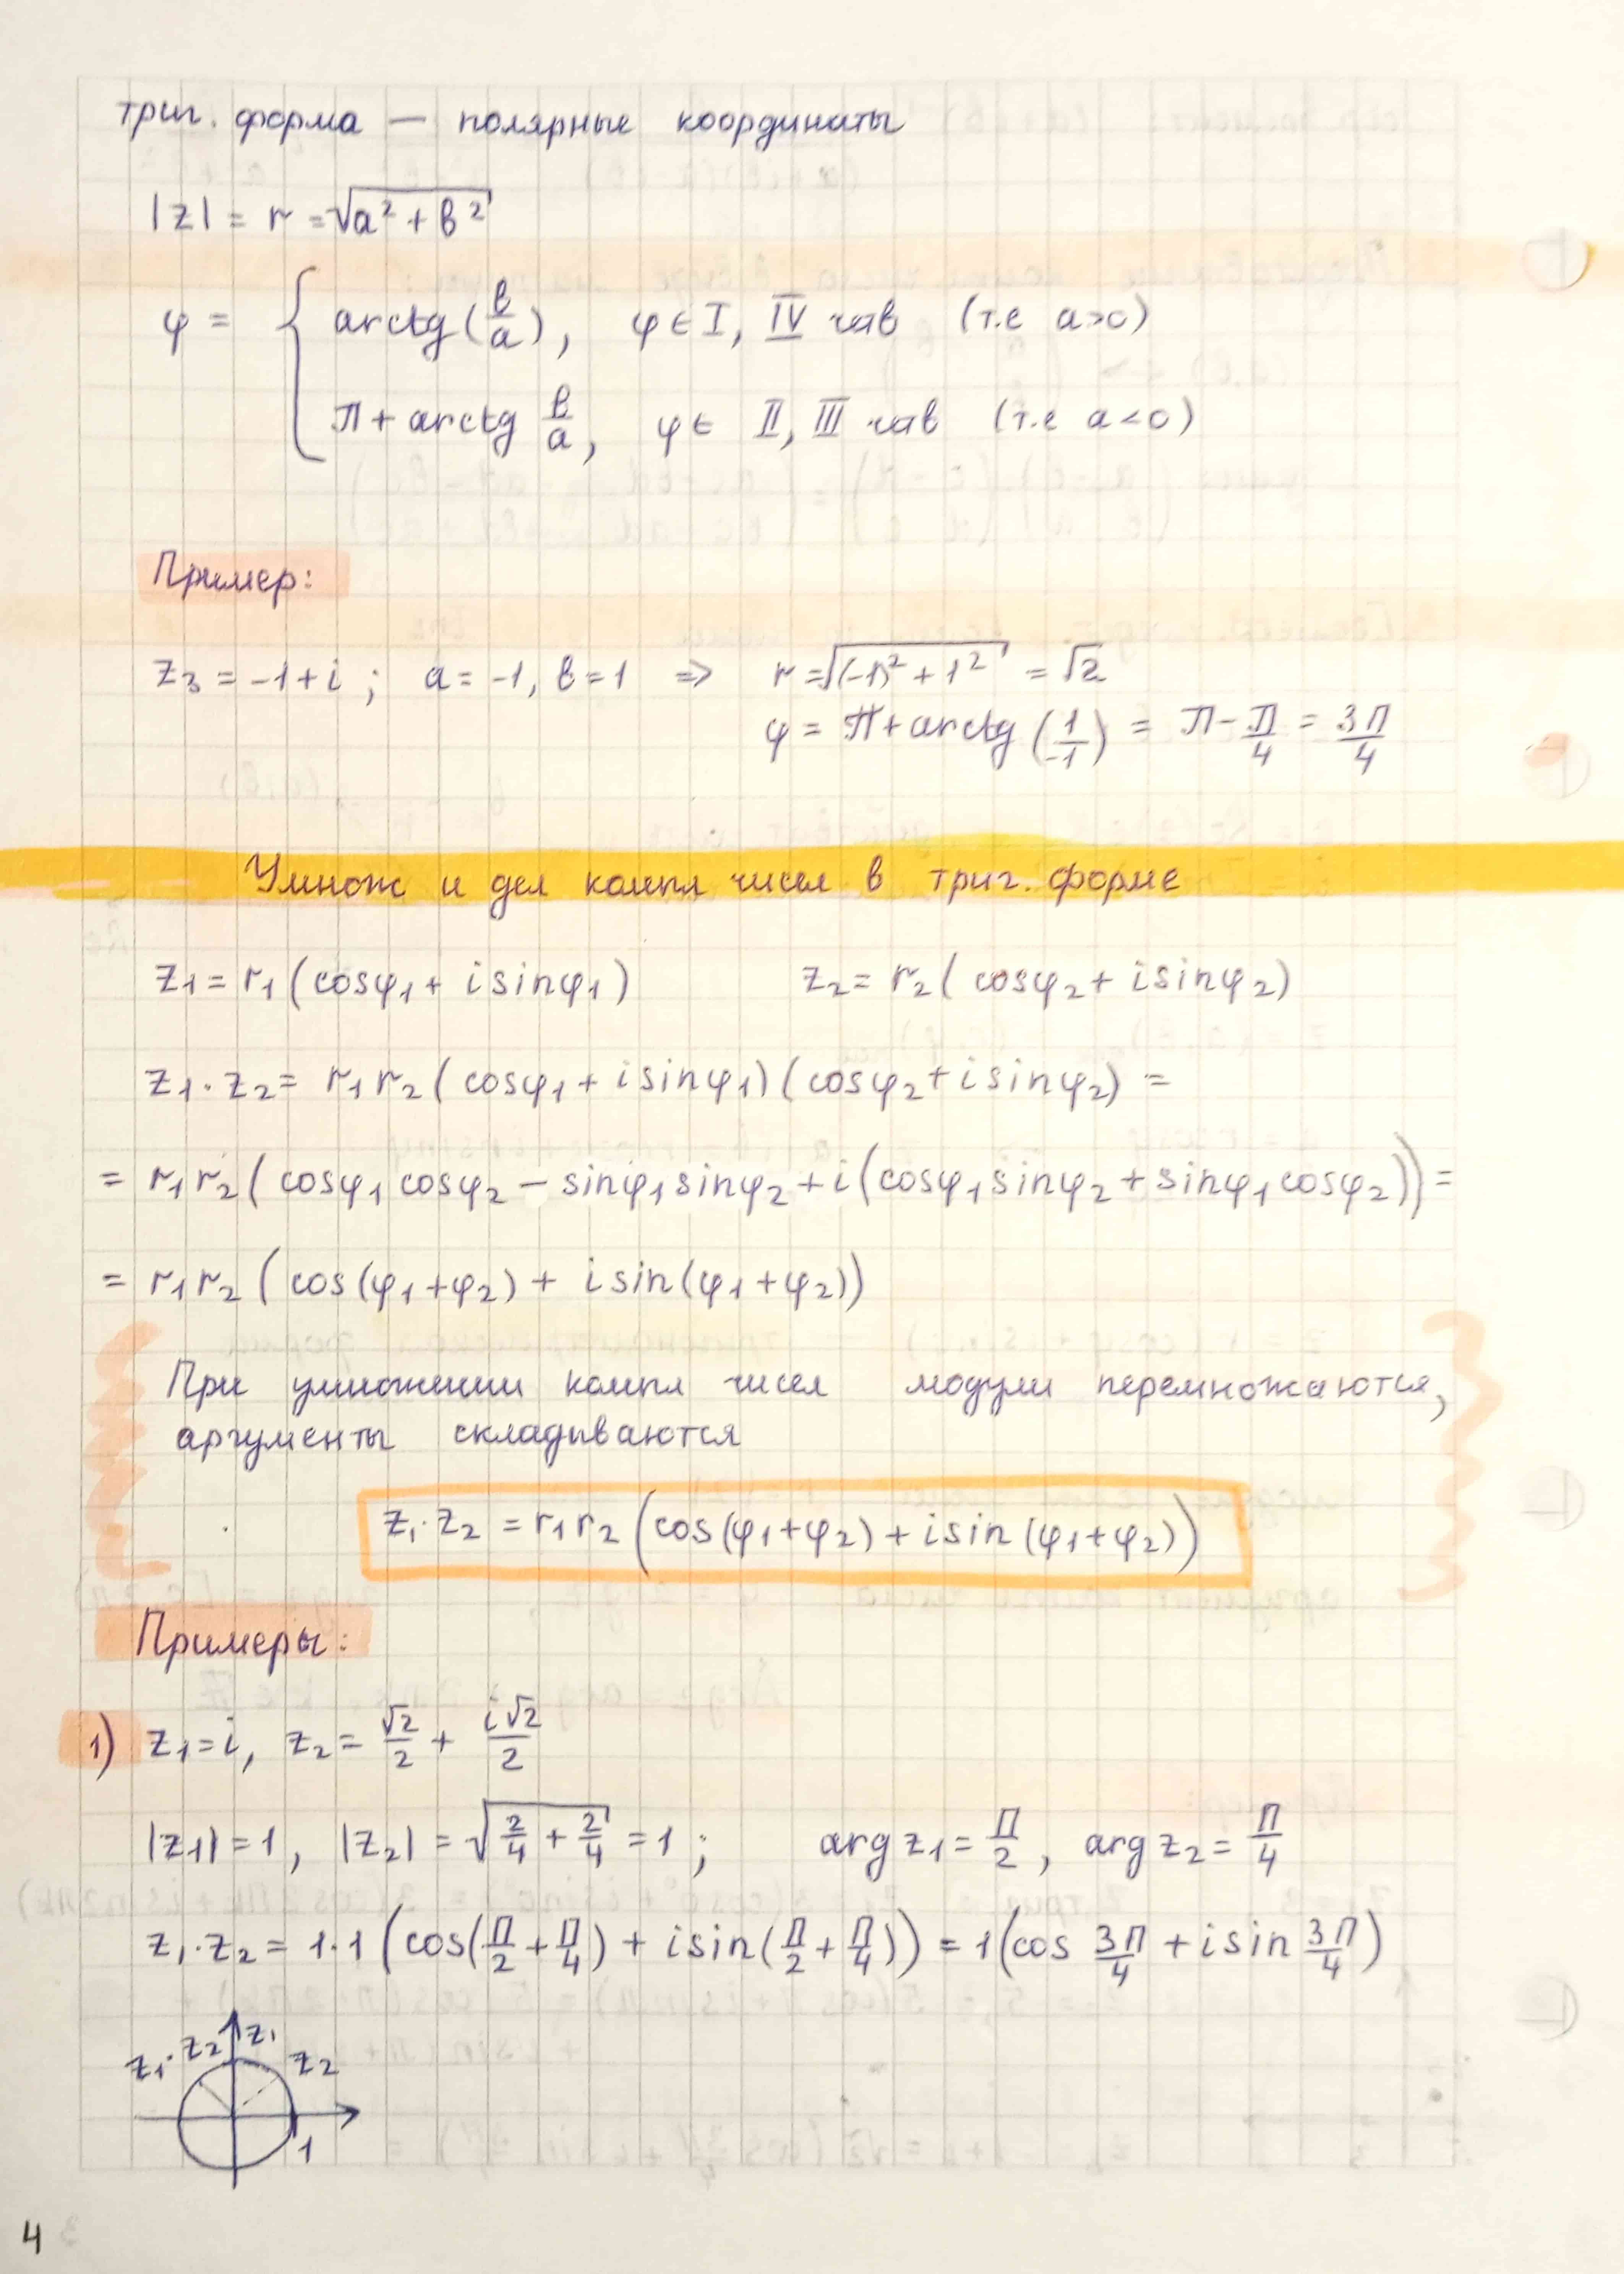 триг. форма — полярные координаты
|z| = r = √(a² + b²)
φ = { arctg(b/a), φ ∈ I, IV чтв (т.е a>0)
π + arctg b/a, φ ∈ II, III чтв (т.е a<0)
Пример:
z₃ = -1+i ; a = -1, b = 1 ⇒ r = √((-1)² + 1²) = √2
φ = π + arctg (1/-1) = π - π/4 = 3π/4
Умнож и дел компл чисел в триг. форме
z₁ = r₁ (cosφ₁ + i sinφ₁) z₂ = r₂ ( cosφ₂ + i sinφ₂)
z₁ · z₂ = r₁ r₂ ( cosφ₁ + i sinφ₁) (cosφ₂ + i sinφ₂) =
= r₁ r₂ ( cosφ₁ cosφ₂ – sinφ₁ sinφ₂ + i (cosφ₁ sinφ₂ + sinφ₁ cosφ₂)) =
= r₁ r₂ ( cos (φ₁ + φ₂) + i sin (φ₁ + φ₂))
При умножении компл чисел модули перемножаются,
аргументы складываются
z₁ · z₂ = r₁ r₂ (cos (φ₁ + φ₂) + i sin (φ₁ + φ₂))
Примеры:
1) z₁ = i, z₂ = √2/2 + i√2/2
|z₁| = 1, |z₂| = √(2/4 + 2/4) = 1 ; arg z₁ = π/2 , arg z₂ = π/4
z₁ · z₂ = 1·1 (cos(π/2 + π/4) + i sin(π/2 + π/4)) = 1(cos 3π/4 + i sin 3π/4)
z₁ · z₂ z₁ z₂
1
4